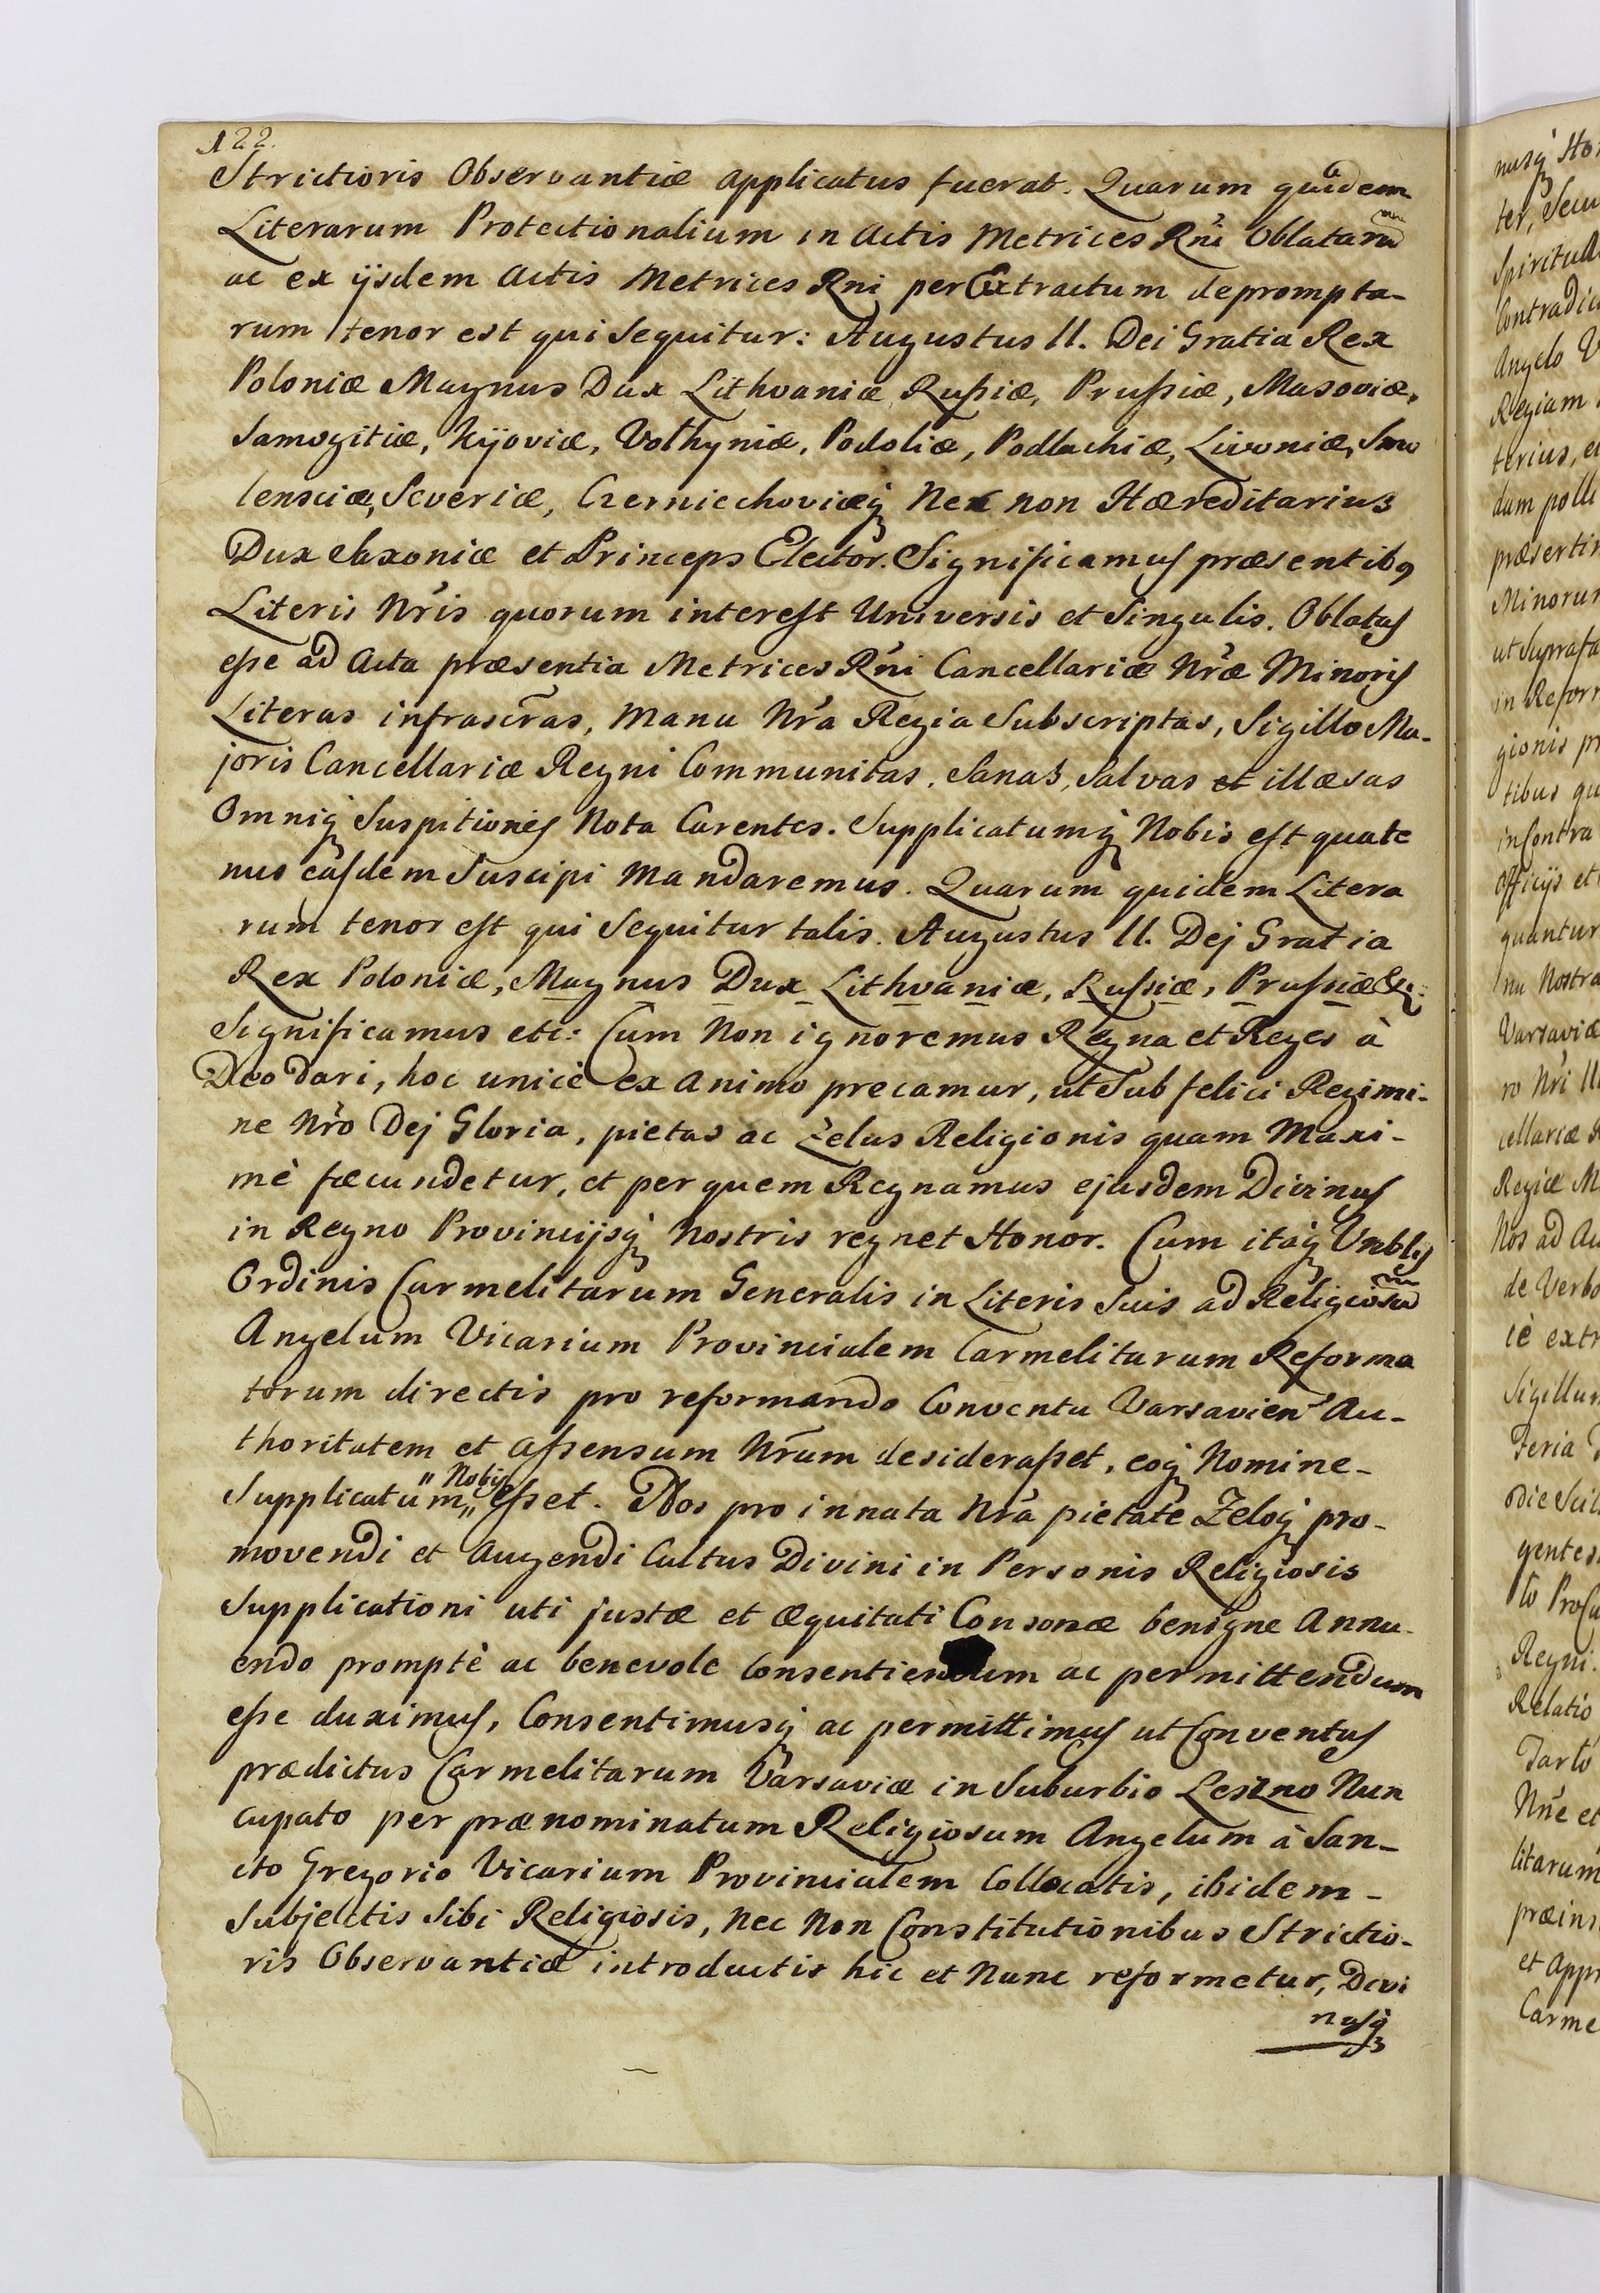 122.
Strictioris Observantiæ applicatus fuerat. Quarum quidem
Literarum Protectionalium in Actis Metrices Rñi Oblatarũ
ac ex ijsdem Actis Metrices Rni per Extractum deprompta-
rum tenor est qui Sequitur: Augustus II. Dei Gratia Rex
Poloniæ Magnus Dux Lithvaniæ, Rußiæ, Prußiæ, Masoviæ,
Samogitiæ, Kÿoviæ, Volhyniæ, Podoliæ, Podlachiæ, Livoniæ, Smo
lensciæ, Severiæ, Czerniechoviæq; Nec non Hæreditarius
Dux Saxoniæ et Princeps Elector. Significamus præsentibq
Literis Nr̃is quorum interest Universis et Singulis. Oblatas
eße ad Acta præsentia Metrices Rñi Cancellariæ Nr̃æ Minoris
Literas infrascr̃as, Manu Nr̃a Regia Subscriptas, Sigillo Ma-
joris Cancellariæ Regni Communitas, Sanas, Salvas et illæsas
Omniq; Suspitionis Nota Carentes. Supplicatumq; Nobis est quate
nus easdem Suscipi Mandaremus. Quarum quidem Litera
rum tenor est qui Sequitur talis. Augustus II. Dej Gratia
Rex Poloniæ, Magnus Dux Lithvaniæ, Rußiæ, Prußiæ &c:
Significamus etc: Cum Non ignoremus Regna et Reges à
Deo dari, hoc unicè ex animo precamur, ut Sub felici Regimi-
ne Nr̃o Dej Gloria, pietas ac Zelus Religionis quam Maxi-
mè fæcundetur, et per quem Regnamus ejusdem Divinus
in Regno Provincijsq; Nostris regnet Honor. Cum itaq; Vnblis
Ordinis Carmelitarum Generalis in Literis Suis ad Religiosũ
Angelum Vicarium Provincialem Carmelitarum Reforma
torum directis pro reformando Conventu Varsavien̾ Au-
thoritatem et Aßensum Nr̃um desideraßet, eoq; Nomine-
Supplicatum „Nobis„ eßet. Nos pro innata Nr̃a pietate Zeloq; pro-
movendi et Augendi Cultus Divini in Personis Religiosis
Supplicationi uti justæ et æquitati Consonæ benigne Annu-
endo promptè ac benevole Consentiendum ac permittendum
eße duximus, Consentimusq; ac permittimus ut Conventus
prædictus Carmelitarum Varsaviæ in Suburbio Leszno Nun
cupato per prænominatum Religiosum Angelum à San-
cto Gregorio Vicarium Provincialem Collocatis, ibidem-
Subjectis Sibi Religiosis, Nec Non Constitutionibus Strictio-
ris Observantiæ introductis hic et Nunc reformetur, Divi
nusq;
nusq; Ho
ter, Secu
Spiritual
Contradic
Angelo V
Regiam
terius, e
dam polli
præsertim
Minorum
ut Suprafa
in Reform
gionis pr
tibus qu
in Contra
Officijs et
quantur
nu Nostra
Varsaviæ
ro Nr̃i II
cellariæ
Regiæ M
Nos ad Au
de Verbo
iè extr
Sigillum
Feria
odie Scil
gentes
to Procu
Regni.
Relatio
Tarło
Nñe et
litarum
præins
et Appr
Carme